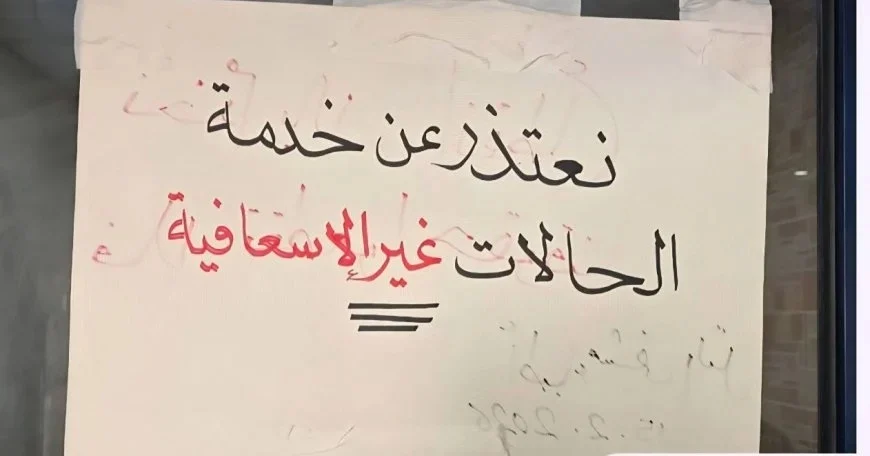 نعتذر عن خدمة
الحالات غير الإسعافية